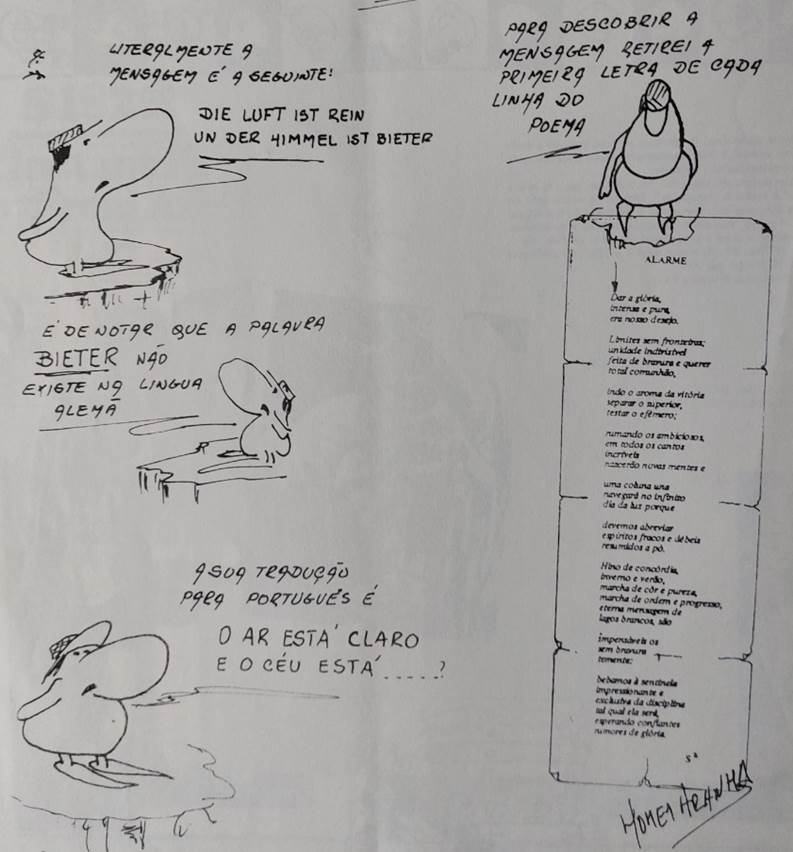 LITERALMENTE A
MENSAGEM É A SEGUINTE:
DIE LUFT IST REIN
UN DER HIMMEL IST BIETER
É DE NOTAR QUE A PALAVRA
BIETER NÃO
EXISTE NA LINGUA
ALEMÃ
A SUA TRADUÇÃO
PARA PORTUGUÊS É
O AR ESTÁ CLARO
E O CÉU ESTÁ.....?
PARA DESCOBRIR A
MENSAGEM RETIREI A
PRIMEIRA LETRA DE CADA
LINHA DO
POEMA
ALARME
Dar a glória,
intensa e pura,
era nosso desejo.
Limites sem fronteiras;
unidade indivisível
feita de bravura e querer
total comunhão,
indo o aroma da vitória
separar o superior,
testar o efémero;
rumando os ambiciosos,
em todos os cantos
incríveis
nascerão novas mentes e
uma coluna una
navegará no infinito
dia da luz porque
devemos abreviar
espíritos fracos e débeis
resumidos a pó.
Hino de concórdia,
inverno e verão,
marcha de côr e pureza,
marcha de ordem e progresso,
eterna mensagem de
lagos brancos, são
impensáveis os
sem bravura
temente;
bebamos à sentinela
impressionante e
exclusiva da disciplina
tal qual ela será,
esperando confiantes
rumores de glória.